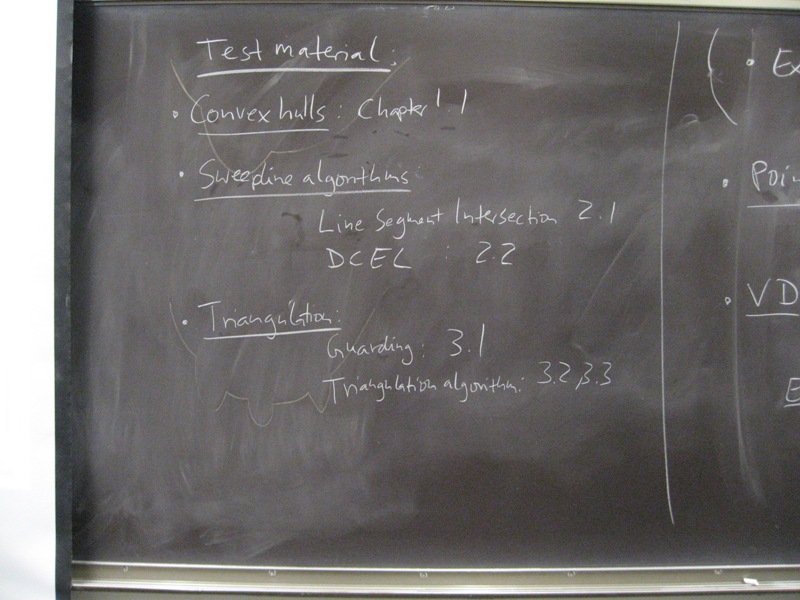 Test material:
• Convex hulls : Chapter 1.1
• Sweepline algorithms:
Line Segment Intersection 2.1
DCEL : 2.2
• Triangulation:
Guarding : 3.1
Triangulation algorithm: 3.2, 3.3
( •
•
• VD